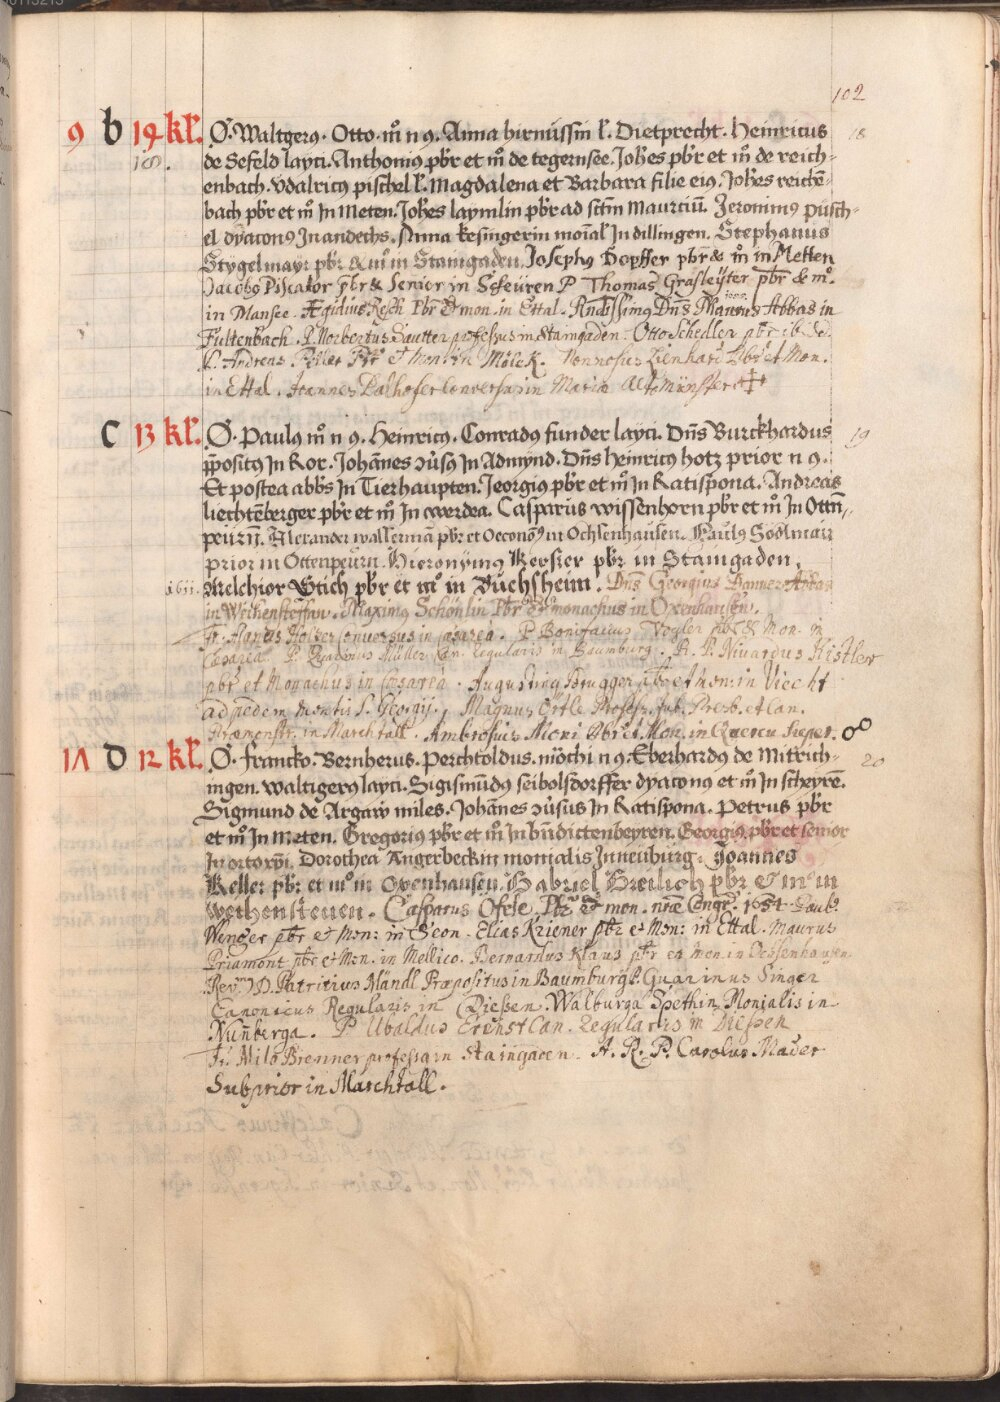 102
9 b 19 kl. O. Waltgerꝰ. Otto. m̊ n ꝯ. Anna birmüssin l. Dietprecht. Heinricus 18
de Sefeld layci. Anthoniꝰ pbr et m̊ de tegernsee. Joh̃es pbr et m̊ de reich-
enbach. Vdalricꝰ pischel l. Magdalena et Barbara filie eiꝰ. Joh̃es reichē-
bach pbr et m̊ Jn Meten. Joh̃es laymlin pbr ad sctm̃ Mauriciū. Jeronimꝰ püsch-
el dyaconꝰ Jn andechs. Anna kesingerin moĩal Jn dillingen. Stephanus
Stÿgelmayr pbr & m̊ in Staingaden. Josephꝰ Hopffer pbr & m̊ in Metten
Jacobꝰ Piscator pbr & Senior in Scheuren P Thomas Grasleÿter pbr & m̊.
in Mansee. Ægidius Resch Pbr & mon. in Ettal. Rndissimꝰ Dn̄s Abbas in
Fultenbach. P. Norbertus Sautter professus in Staingaden. Otto Schedler pbr ibid.
P. Andreas Pbr et Mon in Mölck. Nonnosus Lienhard Pbr et Mon.
in Ettal. Joannes Dalhofer Conversus in Maria Altomünster
C 13 kl. O. Paulꝰ m̊ n ꝯ. Heinricꝰ. Conradꝰ funder layci. Dn̄s Burckhardus 19
p̃positꝰ Jn Ror. Johānes zůsꝰ Jn Admynd. Dn̄s Heinricꝰ hotz prior n ꝯ.
Et postea abb̃s Jn Tierhaupten. Jeorgiꝰ pbr et m̊ Jn Ratispona. Andreas
liechtēberger pbr et m̊ Jn werdea. Casparus wissenhorn pbr et m̊ Jn Ottn̄-
peürn̄. Alexander wallermā pbr et Oeconomꝰ in Ochsenhausen. Paulꝰ Sodlmair
prior in Ottenpeürn. Hieronÿmꝰ Kersier pbr in Staingaden.
1611. Melchior Stich pbr et m̊ in Büchsheim. Dn̄s Georgius Abbas
in Weihensteffan. Maximꝰ Schönlin Pbr & monachus in Oxenhausen.
Fr. Holzer Conuersus in Cæsarea. P. Bonifacius Vogler pbr & Mon. in
Cæsarea. P. Müller Can. Regularis in Baumburg. A. P. Niuardus Kistler
pbr et Monachus in Cæsarea. Augustinꝰ Brugger pbr et mon: in Viecht
ad pedem montis S. Georgij. Magnus Örtle Profess. jub. Presb. et Can.
Præmonstr. in Marchtall. Ambrosius Moni Pbr et Mon. in Quercu Super.
1A D 12 kl. O. francko. Bernherus. Perchtoldus. mōchi n ꝯ. Eberhardꝰ de Mitrich- 20
ingen. Waltigerꝰ layci. Sigismūdꝰ seibolsdorffer dyaconus et m̊ Jn scheyrē.
Sigmund de Argaw miles. Johānes zůsus Jn Ratispona. Petrus pbr
et m̊ Jn Meten. Gregorius pbr et m̊ Jn būdictenbeyren. Georgiꝰ pbr et senior
Dorothea Angerbeckin monialis Jn neüburg. Joannes
Keller pbr et m̊ in Oxenhausen. Gabriel Freilich pbr & m̊ in
weihensteuen. Casparus Öfele Pbr & mon. nr̃æ Congr. 1654. Paulꝰ
Wenger pbr & Mon: in Seon. Elias Kriener pbr et Mon: in Ettal. Maurus
Priamont pbr et Mon. in Mellico. Bernardus Klaus pbr et Mon. in Ochsenhausen.
Revm̃. D. Patritius Mändl Præpositus in Baumburg. P. Guarinus Singer
Canonicus Regularis in Diessen. Walburga Spethin Monialis in
Nun̄berga. P. Ubaldus Ernst Can. Regularis in Diessen
Fr. Milo Brenner professꝰ in Staingaden. A. R. P. Carolus Mader
Subprior in Marchtall.